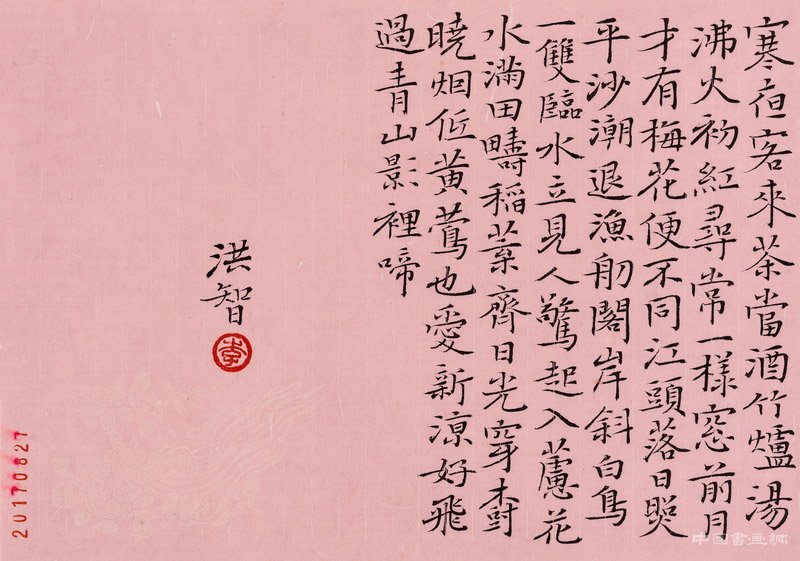 寒夜客來茶當酒竹爐湯
沸火初紅尋常一樣窓前月
才有梅花便不同江頭落日照
平沙潮退漁舠閣岸斜白鳥
一雙臨水立見人驚起入蘆花
水滿田疇稻葉齊日光穿樹
曉烟低黄鶯也愛新涼好飛
過青山影裡啼
洪智
李
20170827
中国書画網